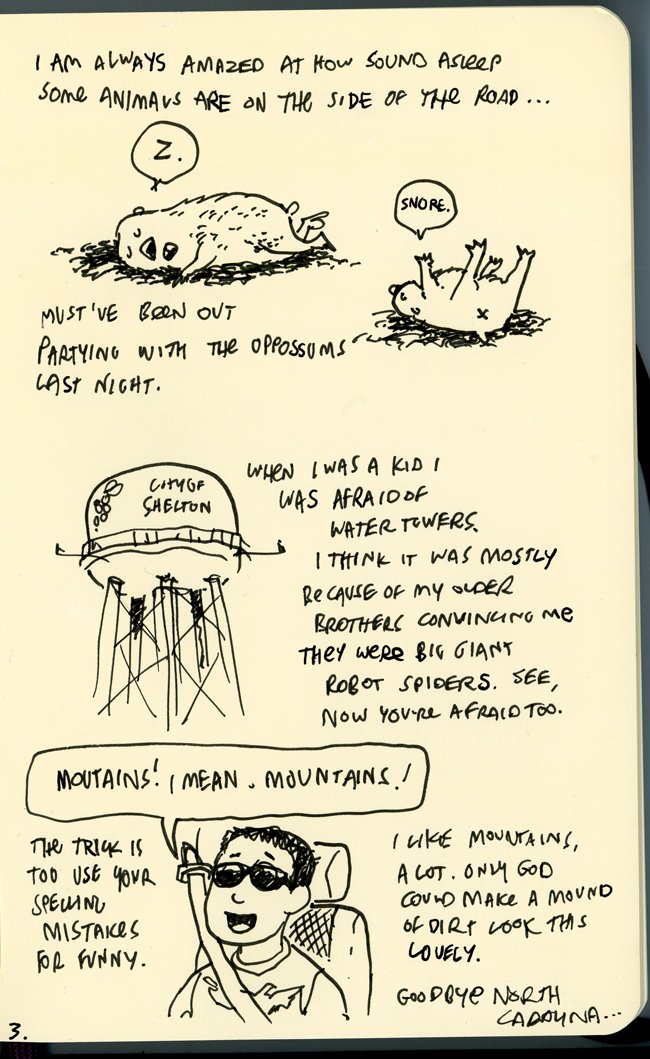 I AM ALWAYS AMAZED AT HOW SOUND ASLEEP
SOME ANIMALS ARE ON THE SIDE OF THE ROAD...
Z.
SNORE.
MUST'VE BEEN OUT
PARTYING WITH THE OPPOSSUMS
LAST NIGHT.
CITY OF
SHELTON
WHEN I WAS A KID I
WAS AFRAID OF
WATER TOWERS.
I THINK IT WAS MOSTLY
BECAUSE OF MY OLDER
BROTHERS CONVINCING ME
THEY WERE BIG GIANT
ROBOT SPIDERS. SEE,
NOW YOU'RE AFRAID TOO.
MOUTAINS! I MEAN, MOUNTAINS!
THE TRICK IS
TOO USE YOUR
SPELLING
MISTAKES
FOR FUNNY.
I LIKE MOUNTAINS,
A LOT. ONLY GOD
COULD MAKE A MOUND
OF DIRT LOOK THIS
LOVELY.
GOODBYE NORTH
CAROLINA...
3.